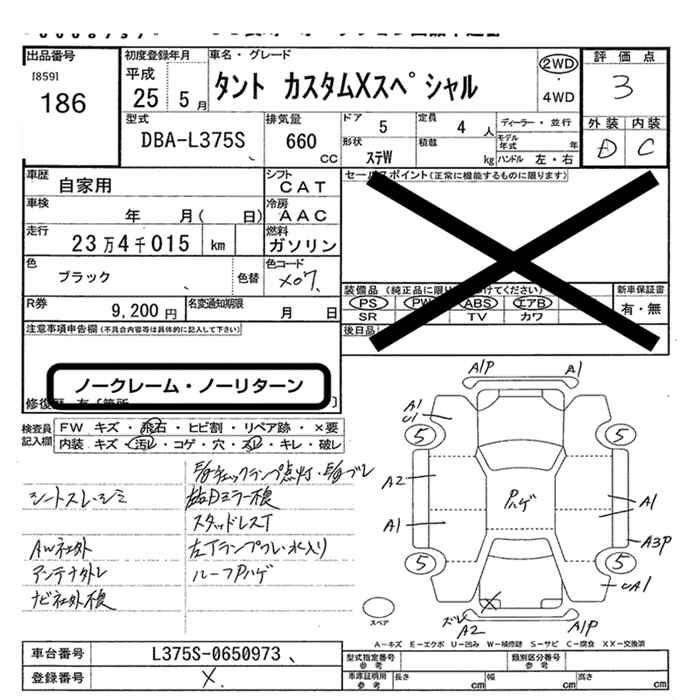 出品番号
[859]
186
初度登録年月
平成
25 5月
車名・グレード
タント カスタムXスペシャル
2WD
・
4WD
評価点
3
外装 内装
D C
型式
DBA-L375S
排気量
660 cc
ドア 5
定員 4 人
形状 ステW
積載 kg
ディーラー・並行
モデル年式 年
ハンドル 左・右
車歴
自家用
シフト
CAT
車検
年 月( 日)
冷房
AAC
走行
23万4千015 km
燃料
ガソリン
色
ブラック
色替
色コード
X07
R券
9,200円
名変通知期限
月 日
セールスポイント(正常に機能するものに限ります)
装備品(純正品に限り けてください)
PS PW ABS エアB
SR TV カワ
新車保証書
有・無
後日品
注意事項申告欄(不具合内容等は具体的に記入して下さい)
ノークレーム・ノーリターン
修復歴 有
検査員記入欄
FW キズ・飛石・ヒビ割・リペア跡・×要
内装 キズ・汚レ・コゲ・穴・スレ・キレ・破レ
E/gチェックランプ点灯・E/gブレ
シートスレ・シミ
右Dミラー不良
スタッドレスT
AW社外
左Tランプワレ水入り
アンテナ外レ
ルーフPハゲ
ナビ社外不良
A1P A1
A1
U1
5 5
A2
Pハゲ
A1 A1
A3P
5 5
UA1
X
ズレ
A2 A1P
スペア
A-キズ E-エクボ U-凹み W-補修跡 S-サビ C-腐食 XX-交換済
車台番号
L375S-0650973
登録番号
X
型式指定番号
参考
類別区分番号
参考
車庫証明用
参考
長さ cm
幅 cm
高さ cm